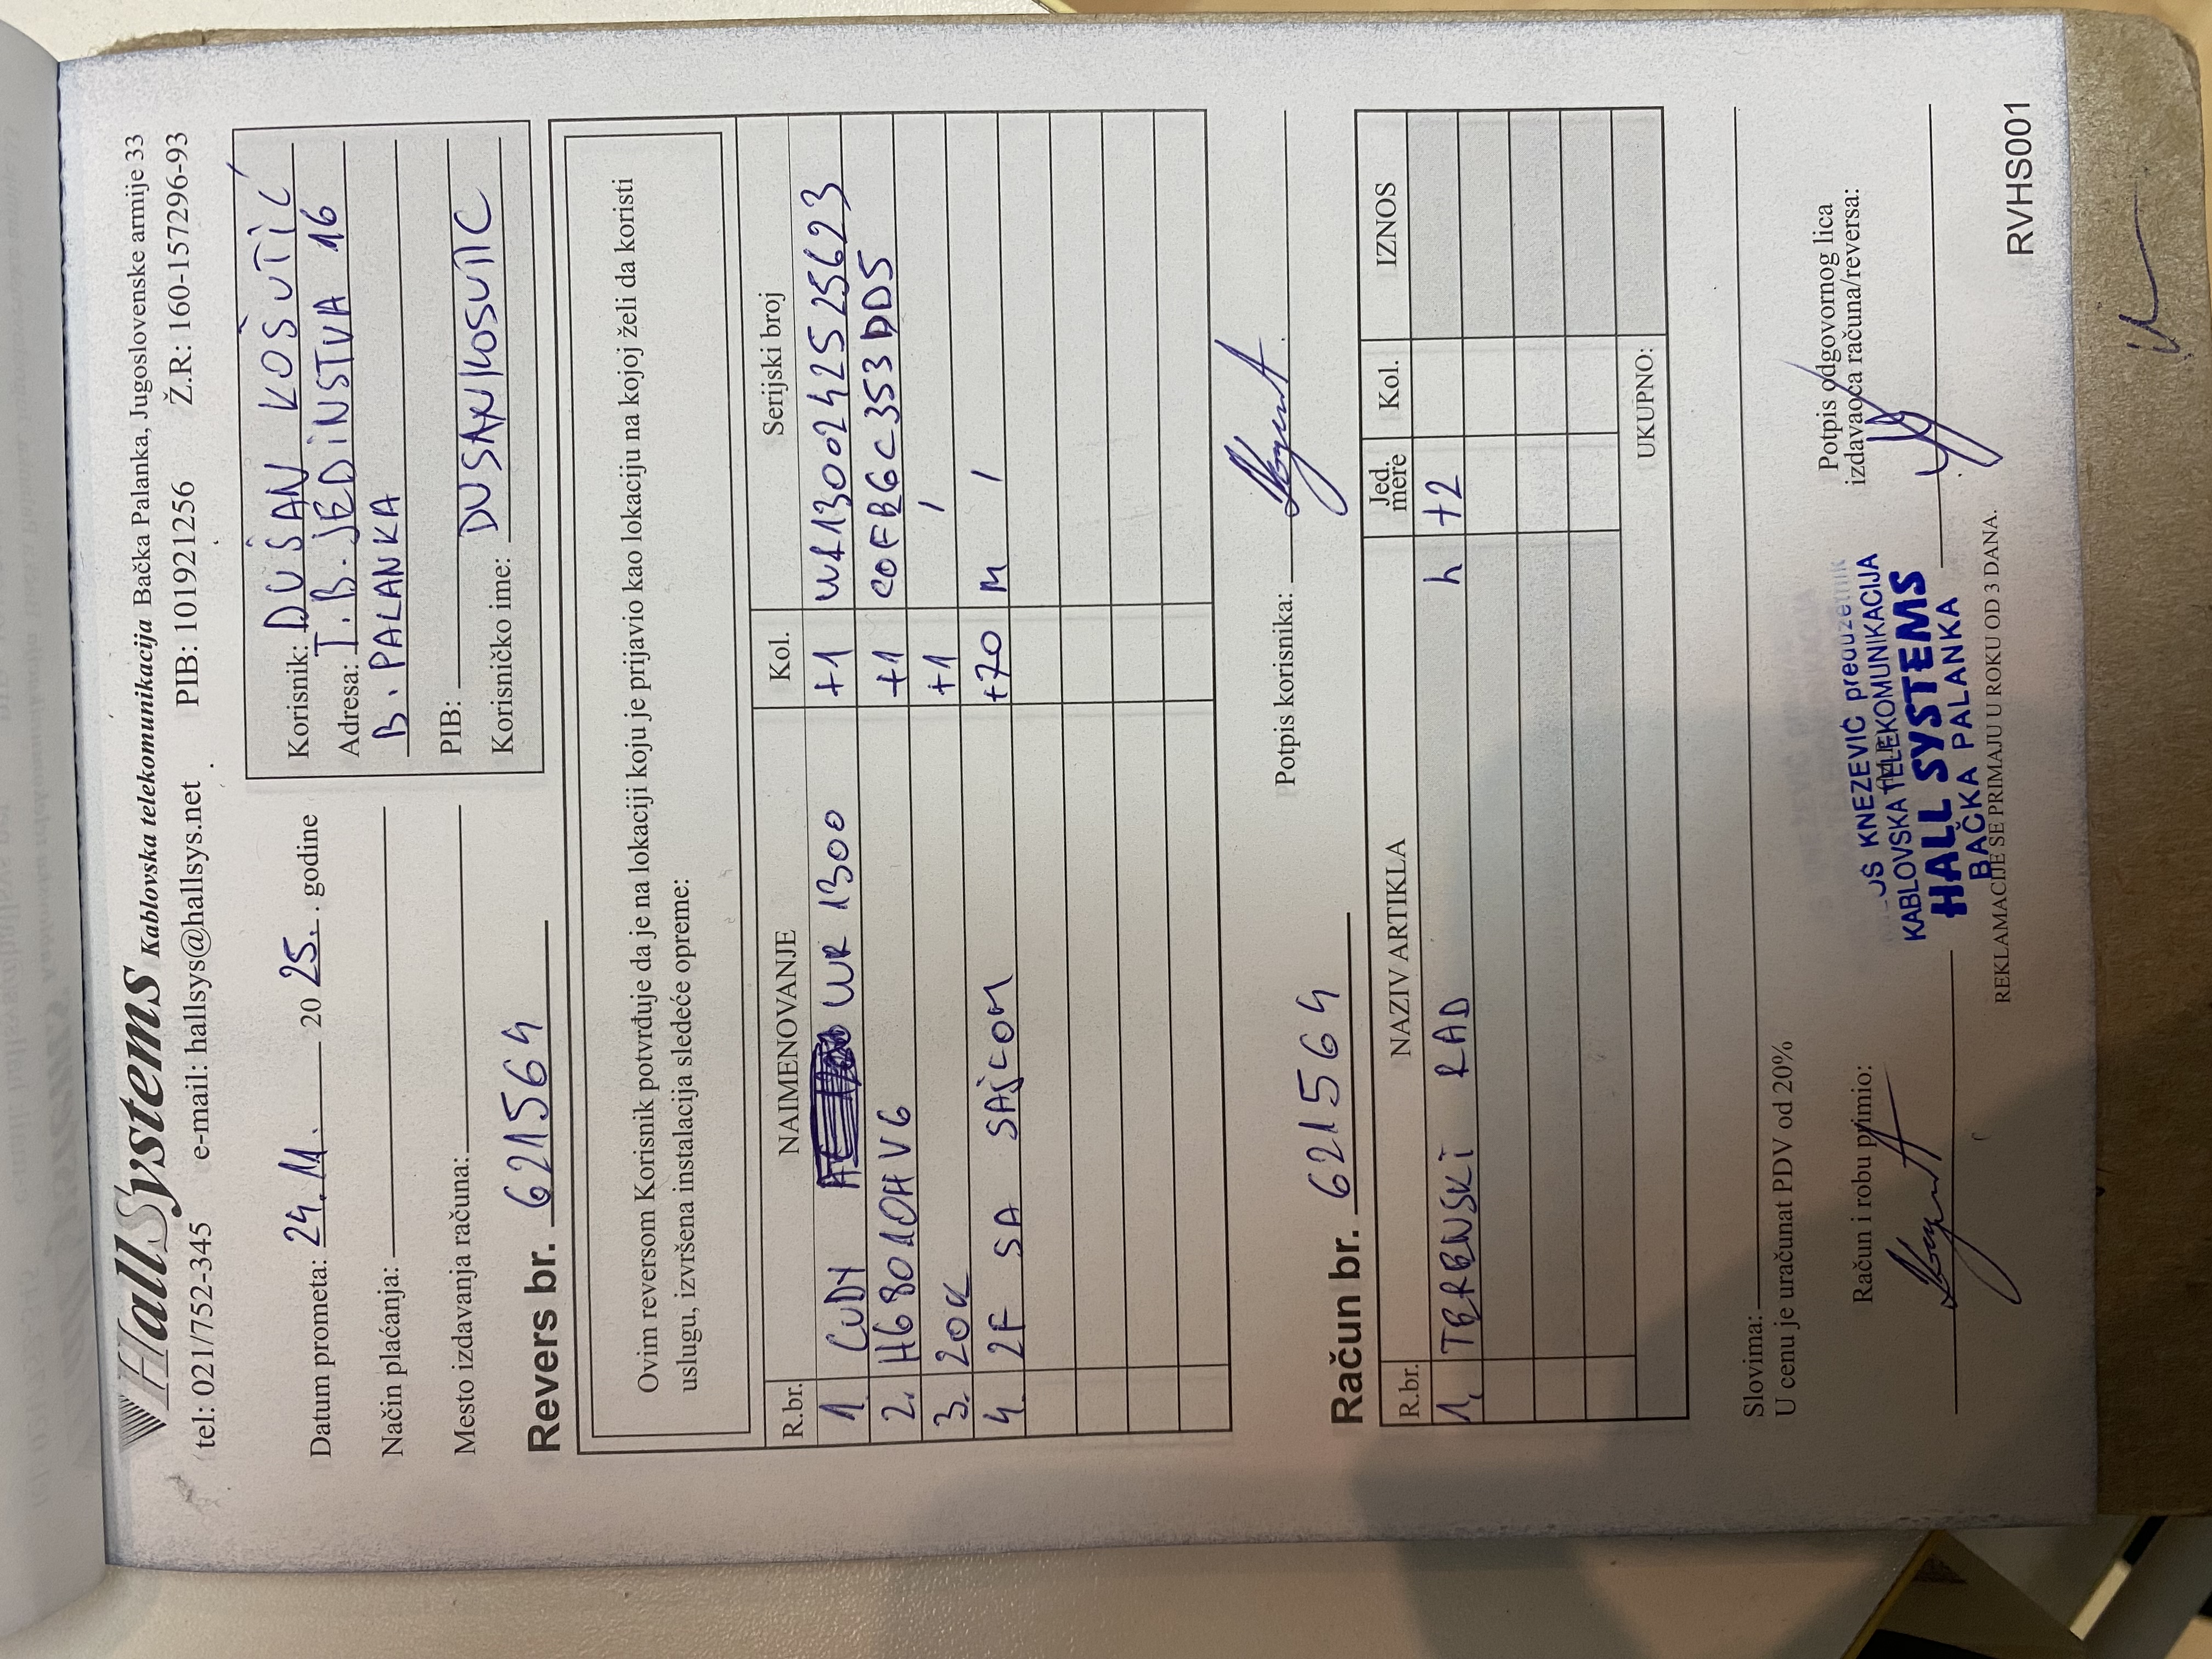 HallSystems Kablovska telekomunikacija Bačka Palanka, Jugoslovenske armije 33
tel: 021/752-345 e-mail: hallsys@hallsys.net PIB: 101921256 Ž.R: 160-157296-93
Datum prometa: 24.11. 2025. godine
Način plaćanja:
Mesto izdavanja računa:
Korisnik: DUŠAN KOŠUTIĆ
Adresa: T.B. JEDINSTVA 16
B. PALANKA
PIB:
Korisničko ime: DUSANKOSUTIC
Revers br. 621564
Ovim reversom Korisnik potvrđuje da je na lokaciji koju je prijavio kao lokaciju na kojoj želi da koristi
uslugu, izvršena instalacija sledeće opreme:
R.br. NAIMENOVANJE Kol. Serijski broj
1. CUDY WR 1300 +1 WR1300242525623
2. HG8010HV6 +1 C0FB6C353DD5
3. 20K +1 /
4. 2F SA SAJLOM +70 M /
Potpis korisnika:
Račun br. 621564
R.br. NAZIV ARTIKLA Jed. mere Kol. IZNOS
1. TERENSKI RAD h +2
UKUPNO:
Slovima:
U cenu je uračunat PDV od 20%
Račun i robu primio:
Potpis odgovornog lica
izdavaoca računa/reversa:
KNEZEVIĆ preduzetnik
KABLOVSKA TELEKOMUNIKACIJA
HALL SYSTEMS
BAČKA PALANKA
REKLAMACIJE SE PRIMAJU U ROKU OD 3 DANA.
RVHS001